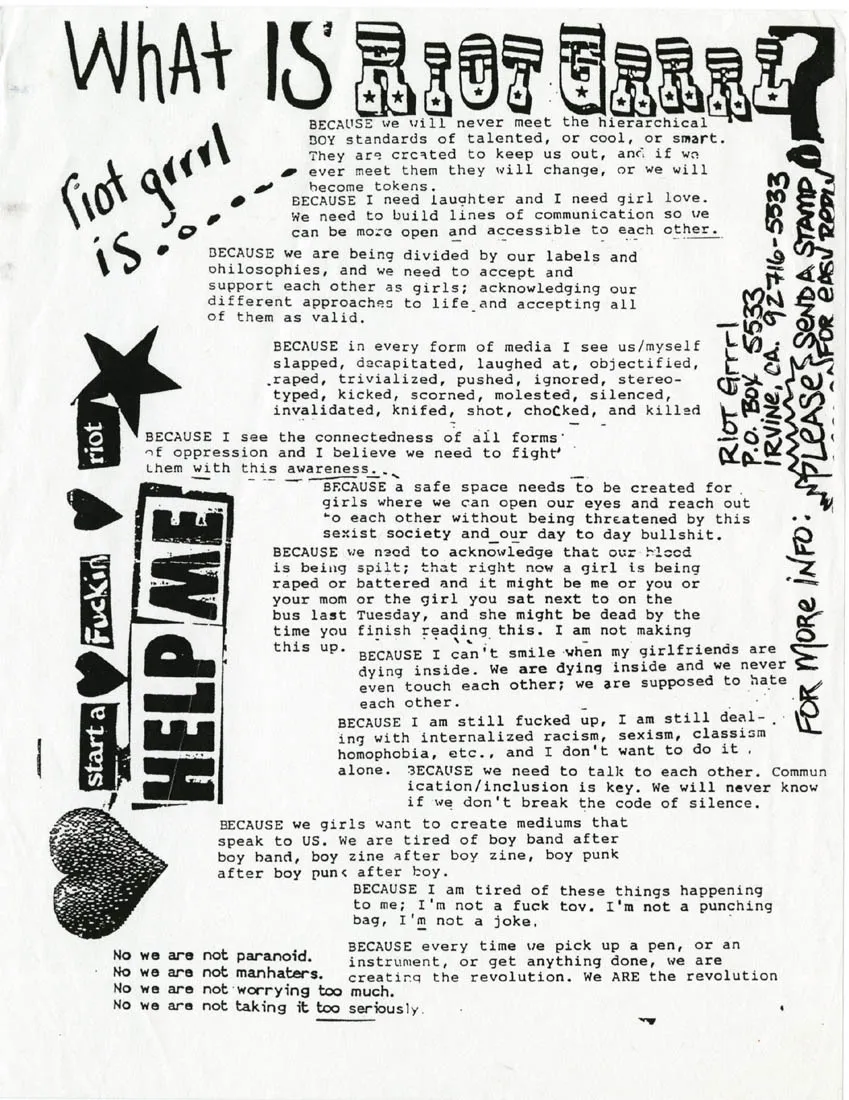 WhAt IS RIOT GRRRL?
riot grrrl
is.......
BECAUSE we will never meet the hierarchical
BOY standards of talented, or cool, or smart.
They are created to keep us out, and if we
ever meet them they will change, or we will
become tokens.
BECAUSE I need laughter and I need girl love.
We need to build lines of communication so we
can be more open and accessible to each other.
BECAUSE we are being divided by our labels and
philosophies, and we need to accept and
support each other as girls; acknowledging our
different approaches to life and accepting all
of them as valid.
BECAUSE in every form of media I see us/myself
slapped, decapitated, laughed at, objectified,
raped, trivialized, pushed, ignored, stereo-
typed, kicked, scorned, molested, silenced,
invalidated, knifed, shot, choCked, and killed
BECAUSE I see the connectedness of all forms
of oppression and I believe we need to fight
them with this awareness.
BECAUSE a safe space needs to be created for
girls where we can open our eyes and reach out
to each other without being threatened by this
sexist society and our day to day bullshit.
BECAUSE we need to acknowledge that our blood
is being spilt; that right now a girl is being
raped or battered and it might be me or you or
your mom or the girl you sat next to on the
bus last Tuesday, and she might be dead by the
time you finish reading this. I am not making
this up.
BECAUSE I can't smile when my girlfriends are
dying inside. We are dying inside and we never
even touch each other; we are supposed to hate
each other.
BECAUSE I am still fucked up, I am still deal-
ing with internalized racism, sexism, classism
homophobia, etc., and I don't want to do it
alone.
BECAUSE we need to talk to each other. Commun
ication/inclusion is key. We will never know
if we don't break the code of silence.
BECAUSE we girls want to create mediums that
speak to US. We are tired of boy band after
boy band, boy zine after boy zine, boy punk
after boy punk after boy.
BECAUSE I am tired of these things happening
to me; I'm not a fuck toy. I'm not a punching
bag, I'm not a joke.
BECAUSE every time we pick up a pen, or an
instrument, or get anything done, we are
creating the revolution. We ARE the revolution
No we are not paranoid.
No we are not manhaters.
No we are not worrying too much.
No we are not taking it too seriously.
start a Fuckin riot
HELP ME
FOR MORE iNFO:
RIOT Grrrl
P.O. BOX 5533
IRVINE, CA. 92716-5533
PLEASE SEND A STAMP
FOR EASY REPLY